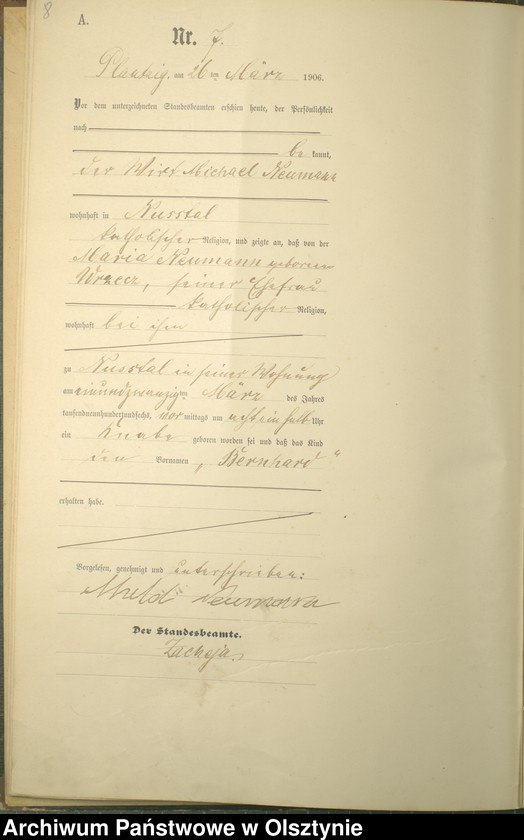 8
A.
Nr. 7.
Plautzig, am 26ten März 1906.
Vor dem unterzeichneten Standesbeamten erschien heute, der Persönlichkeit
nach
be kannt,
der Wirt Michael Neumann
wohnhaft in Nusstal
katholischer Religion, und zeigte an, daß von der
Maria Neumann geborenen
seiner Ehefrau
katholischer Religion,
wohnhaft bei ihm
zu Nusstal in seiner Wohnung
am einundzwanzigten März des Jahres
tausendneunhundertundsechs, vor mittags um achteinhalb Uhr
ein Knabe geboren worden sei und daß das Kind
den Vornamen „Bernhard"
erhalten habe.
Vorgelesen, genehmigt und unterschrieben:
Neumann
Der Standesbeamte.
Archiwum Państwowe w Olsztynie